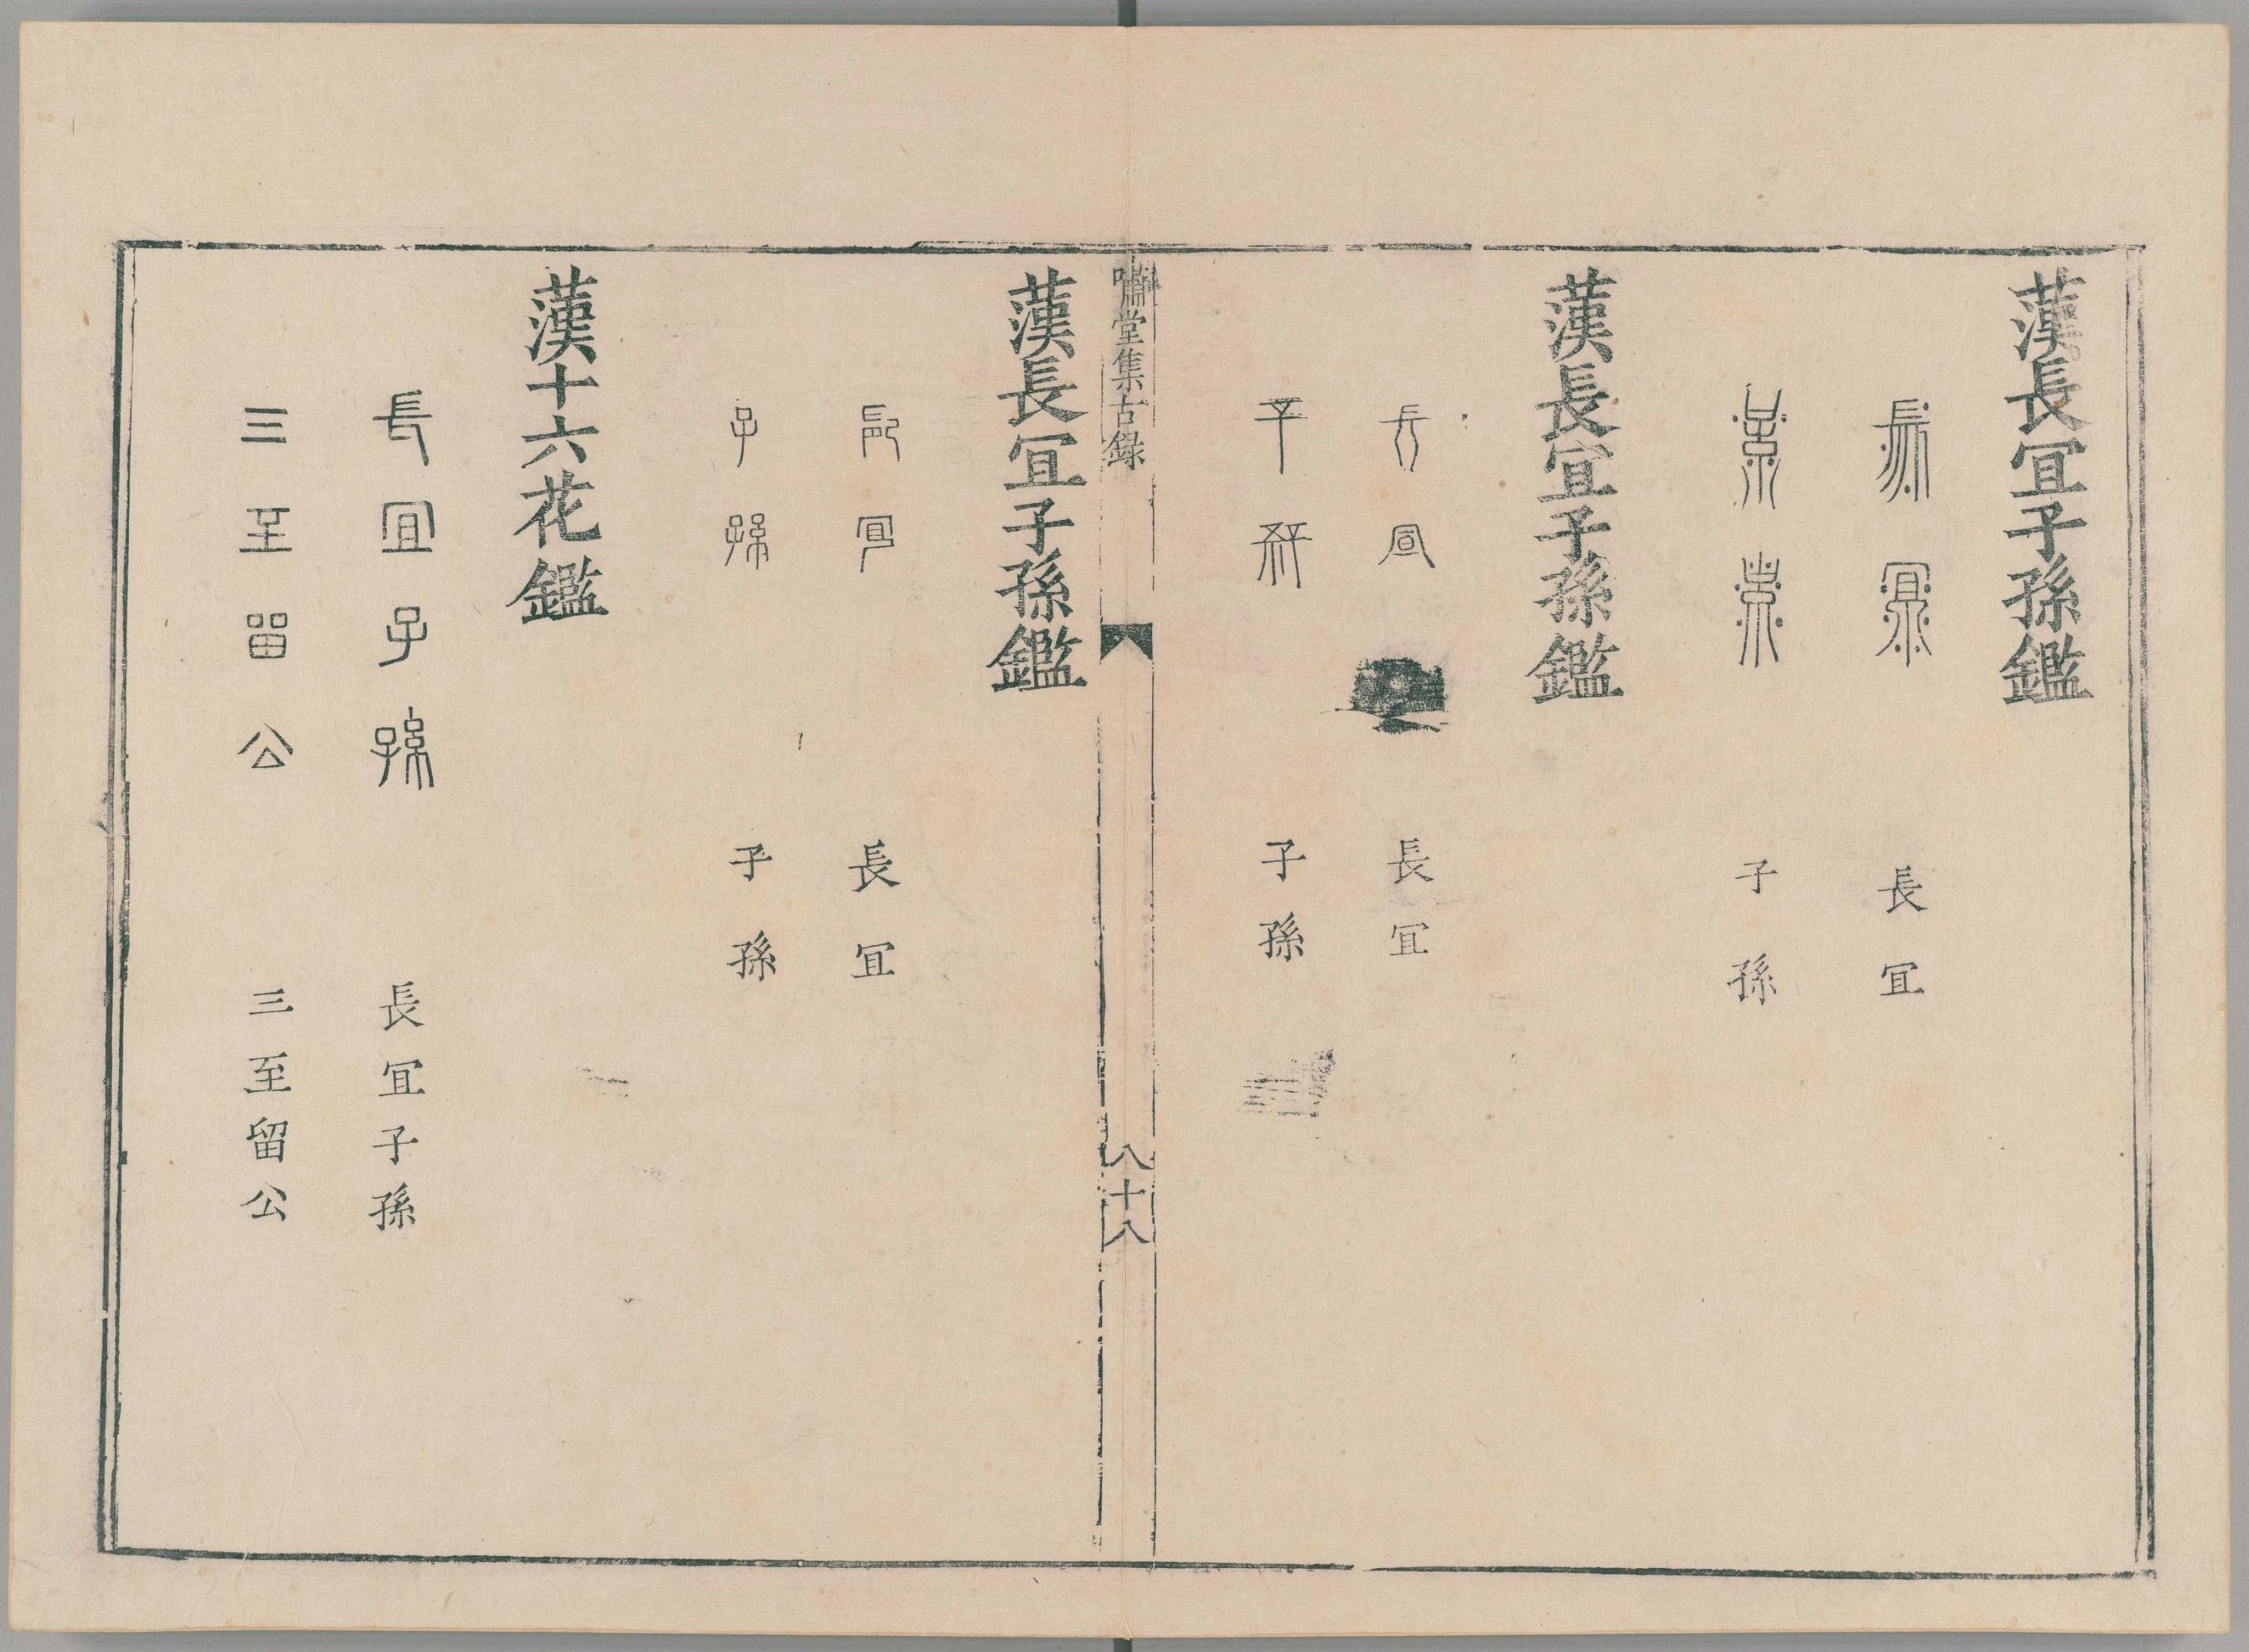 漢長宜子孫鑑
長宜
子孫
長宜
子孫
漢長宜子孫鑑
長宜
子孫
長宜
子孫
嘯堂集古錄
八十八
漢長宜子孫鑑
長宜
子孫
長宜
子孫
漢十六花鑑
長宜子孫
三至留公
長宜子孫
三至留公